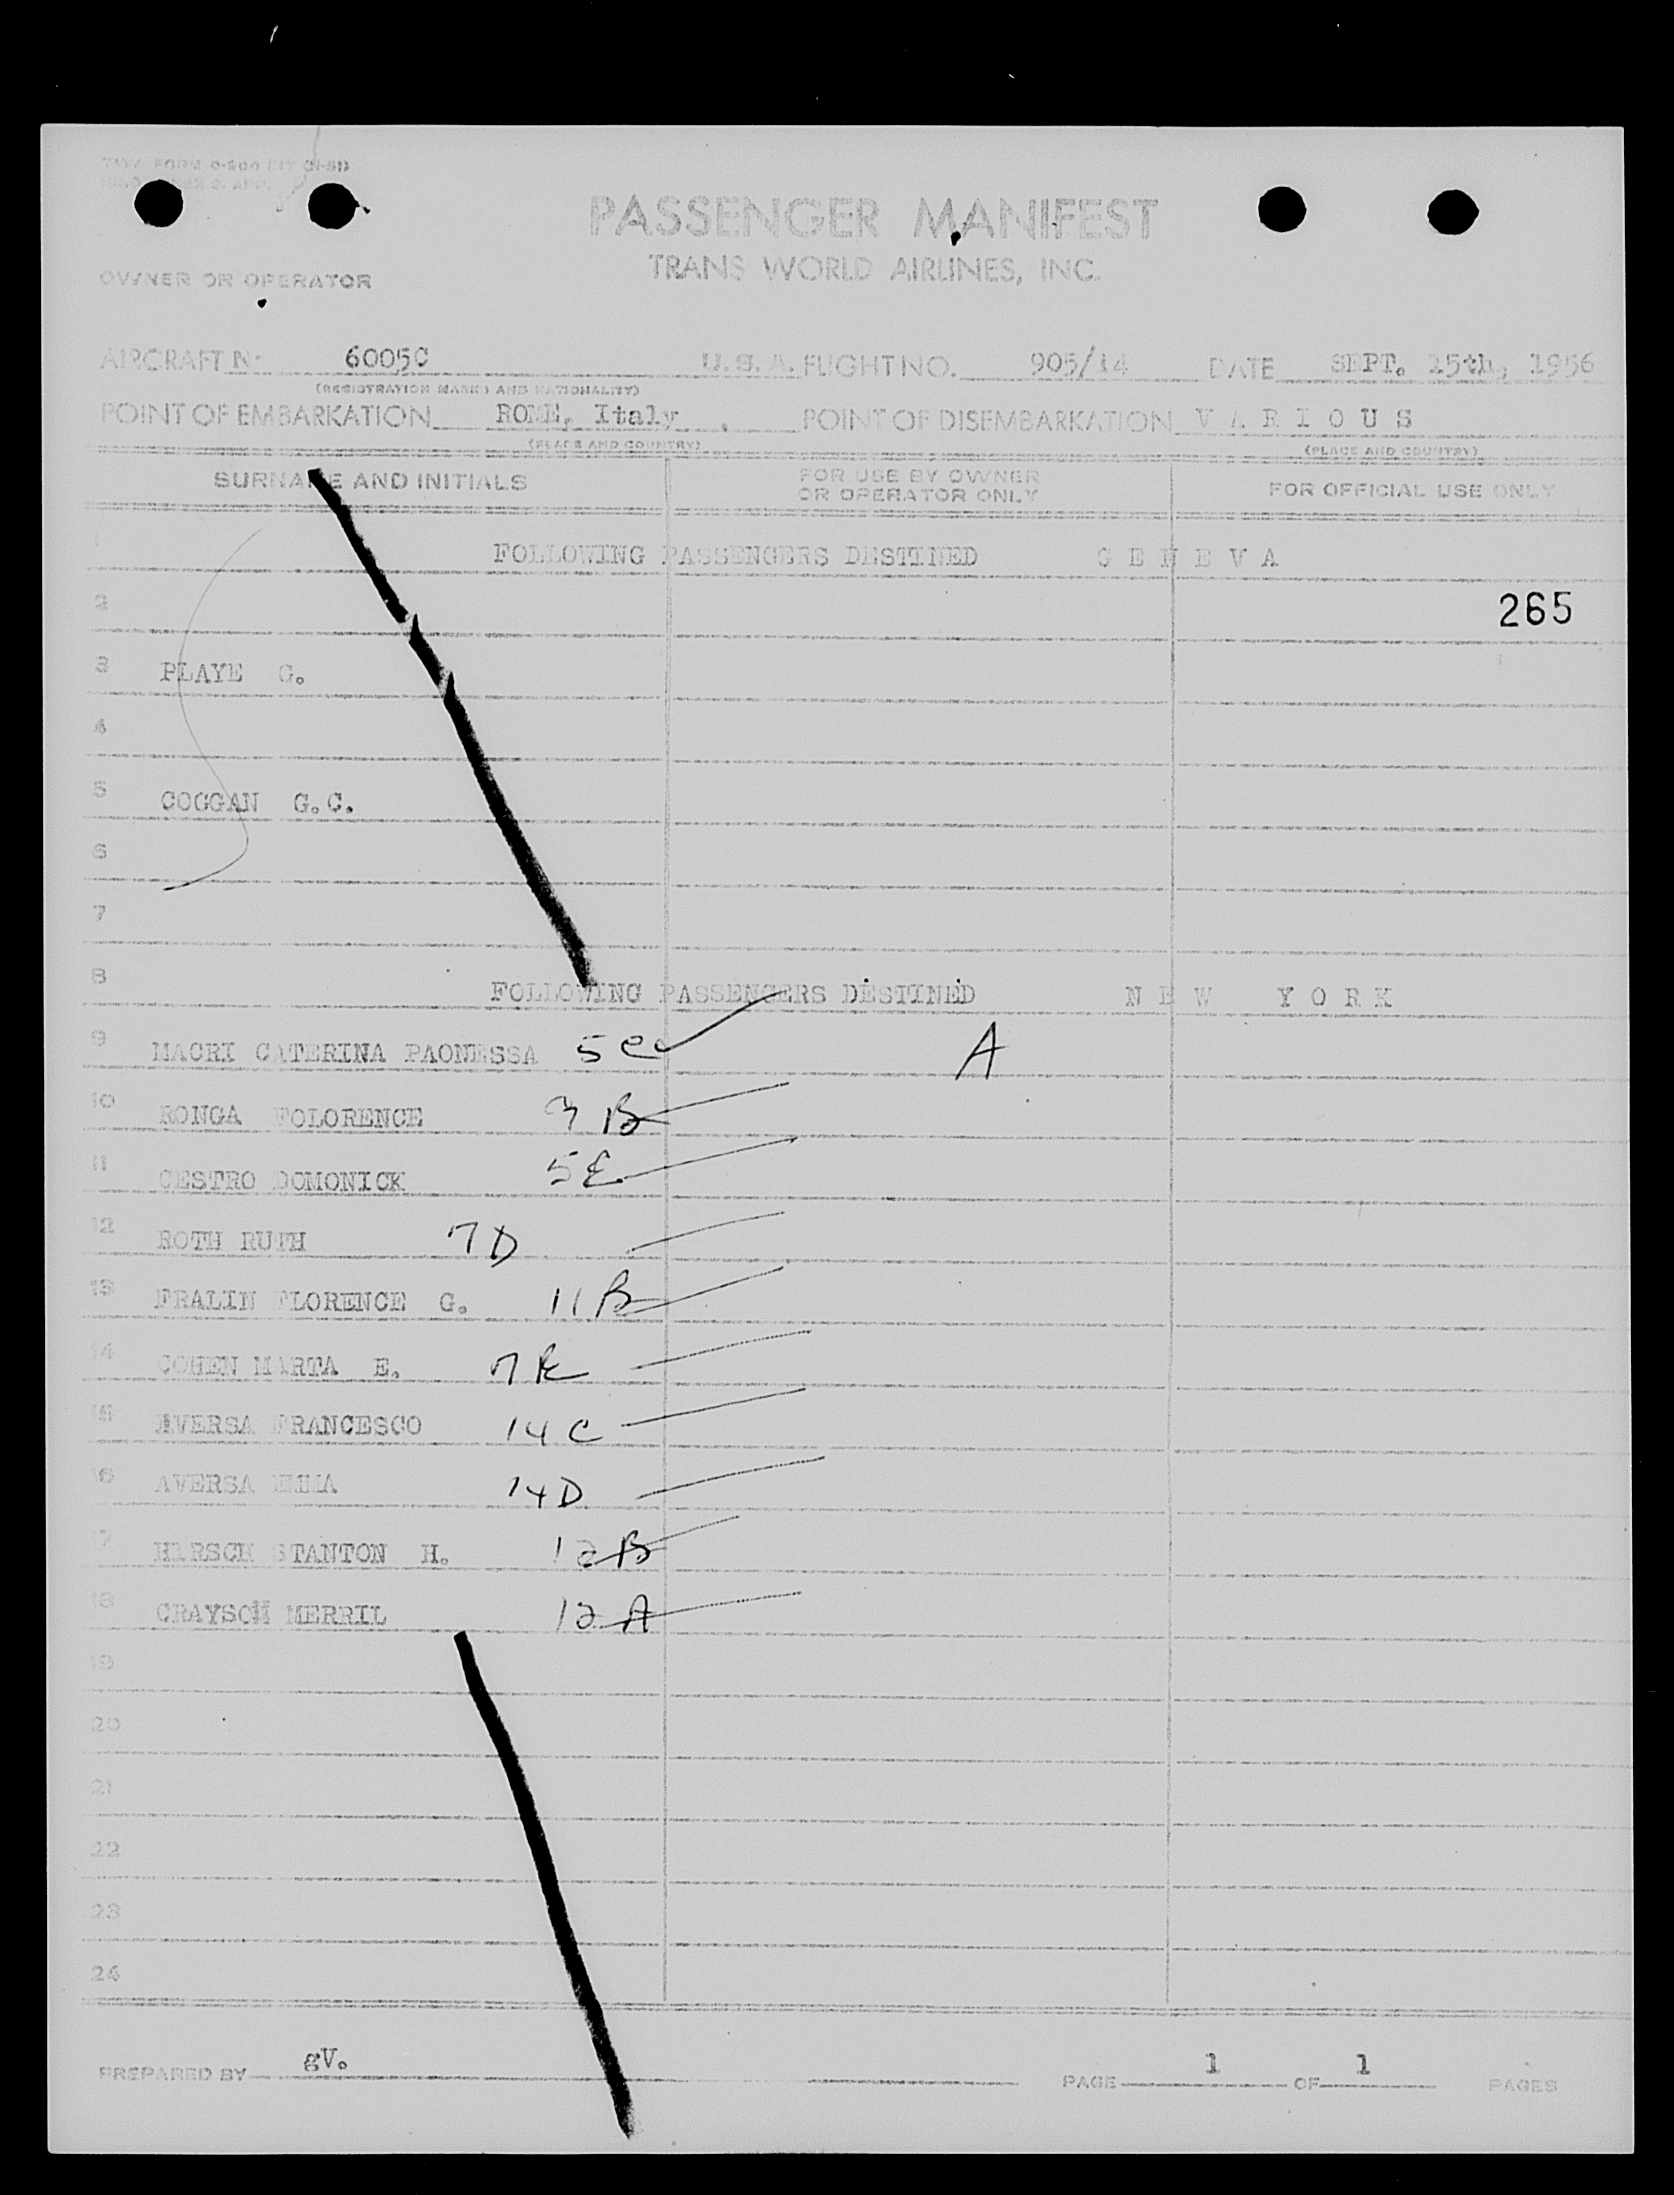 PASSENGER MANIFEST
TRANS WORLD AIRLINES, INC.
OWNER OR OPERATOR
AIRCRAFT No 6005C U.S.A. FLIGHT NO. 905/14 DATE SEPT. 15th, 1956
(REGISTRATION MARKS AND NATIONALITY)
POINT OF EMBARKATION ROME, Italy . POINT OF DISEMBARKATION V A R I O U S
(PLACE AND COUNTRY) (PLACE AND COUNTRY)
SURNAME AND INITIALS FOR USE BY OWNER OR OPERATOR ONLY FOR OFFICIAL USE ONLY
1 FOLLOWING PASSENGERS DESTINED G E N E V A
2 265
3 PLAYE G.
4
5 COGGAN G.C.
6
7
8 FOLLOWING PASSENGERS DESTINED N E W Y O R K
9 MACRI CATERINA PAONESSA 5 C A
10 RONGA FOLORENCE 7 B
11 CESTRO DOMONICK 5 E
12 ROTH RUTH 7 D
13 FRALIN FLORENCE G. 11 B
14 COHEN MARTA E. 7 E
15 AVERSA FRANCESCO 14 C
16 AVERSA EMMA 14 D
17 HIRSCH STANTON H. 12 B
18 GRAYSON MERRIL 12 A
19
20
21
22
23
24
PREPARED BY gV. PAGE 1 OF 1 PAGES